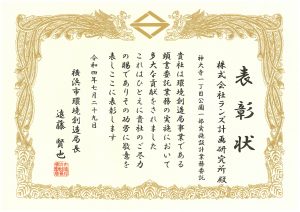 表彰状
株式会社ランズ計画研究所殿
神大寺一丁目公園一部実施設計業務委託
貴社は環境創造局事業である
頭書委託業務の実施において
多大な貢献をされました
これはひとえに貴社のご尽力
の賜でありその功労に敬意を
表しここに表彰します
令和四年七月二十九日
横浜市環境創造局長
遠藤賢也